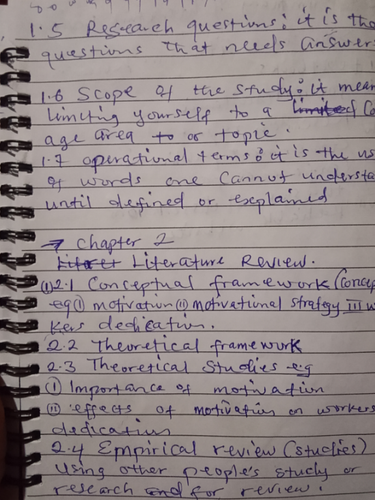 1.5 Research questions: it is the
questions that needs answer
1.6 Scope of the study: it mean
limiting yourself to a limited
age area to or topic.
1.7 operational terms: it is the us
of words one cannot understa
until defined or explained
→ chapter 2
Literet Literature Review.
(i) 2.1 Conceptual framework (concep
eg (i) motivation (ii) motivational strategy III w
kers dedication.
2.2 Theoretical framework
2.3 Theoretical studies eg
(i) Importance of motivation
(ii) effects of motivation on workers
dedication
2.4 Empirical review (studies)
Using other people's study or
research and for review.